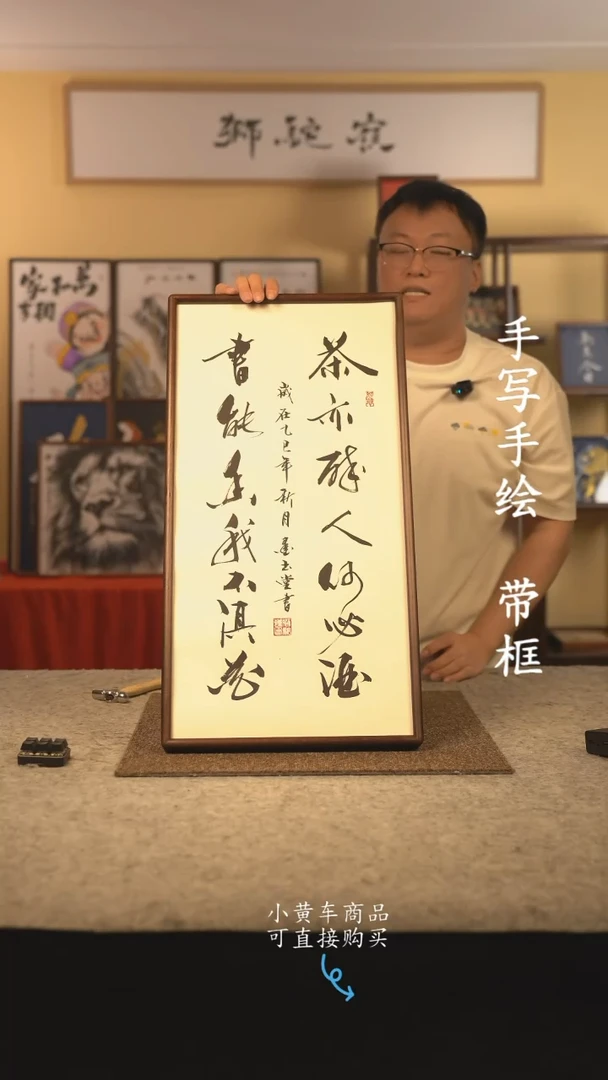 狮驼
家和萬
事興
茶亦醉人何必酒
書能香我不須花
歲在乙巳年新月 堂書
手写手绘 带框
小黄车商品
可直接购买